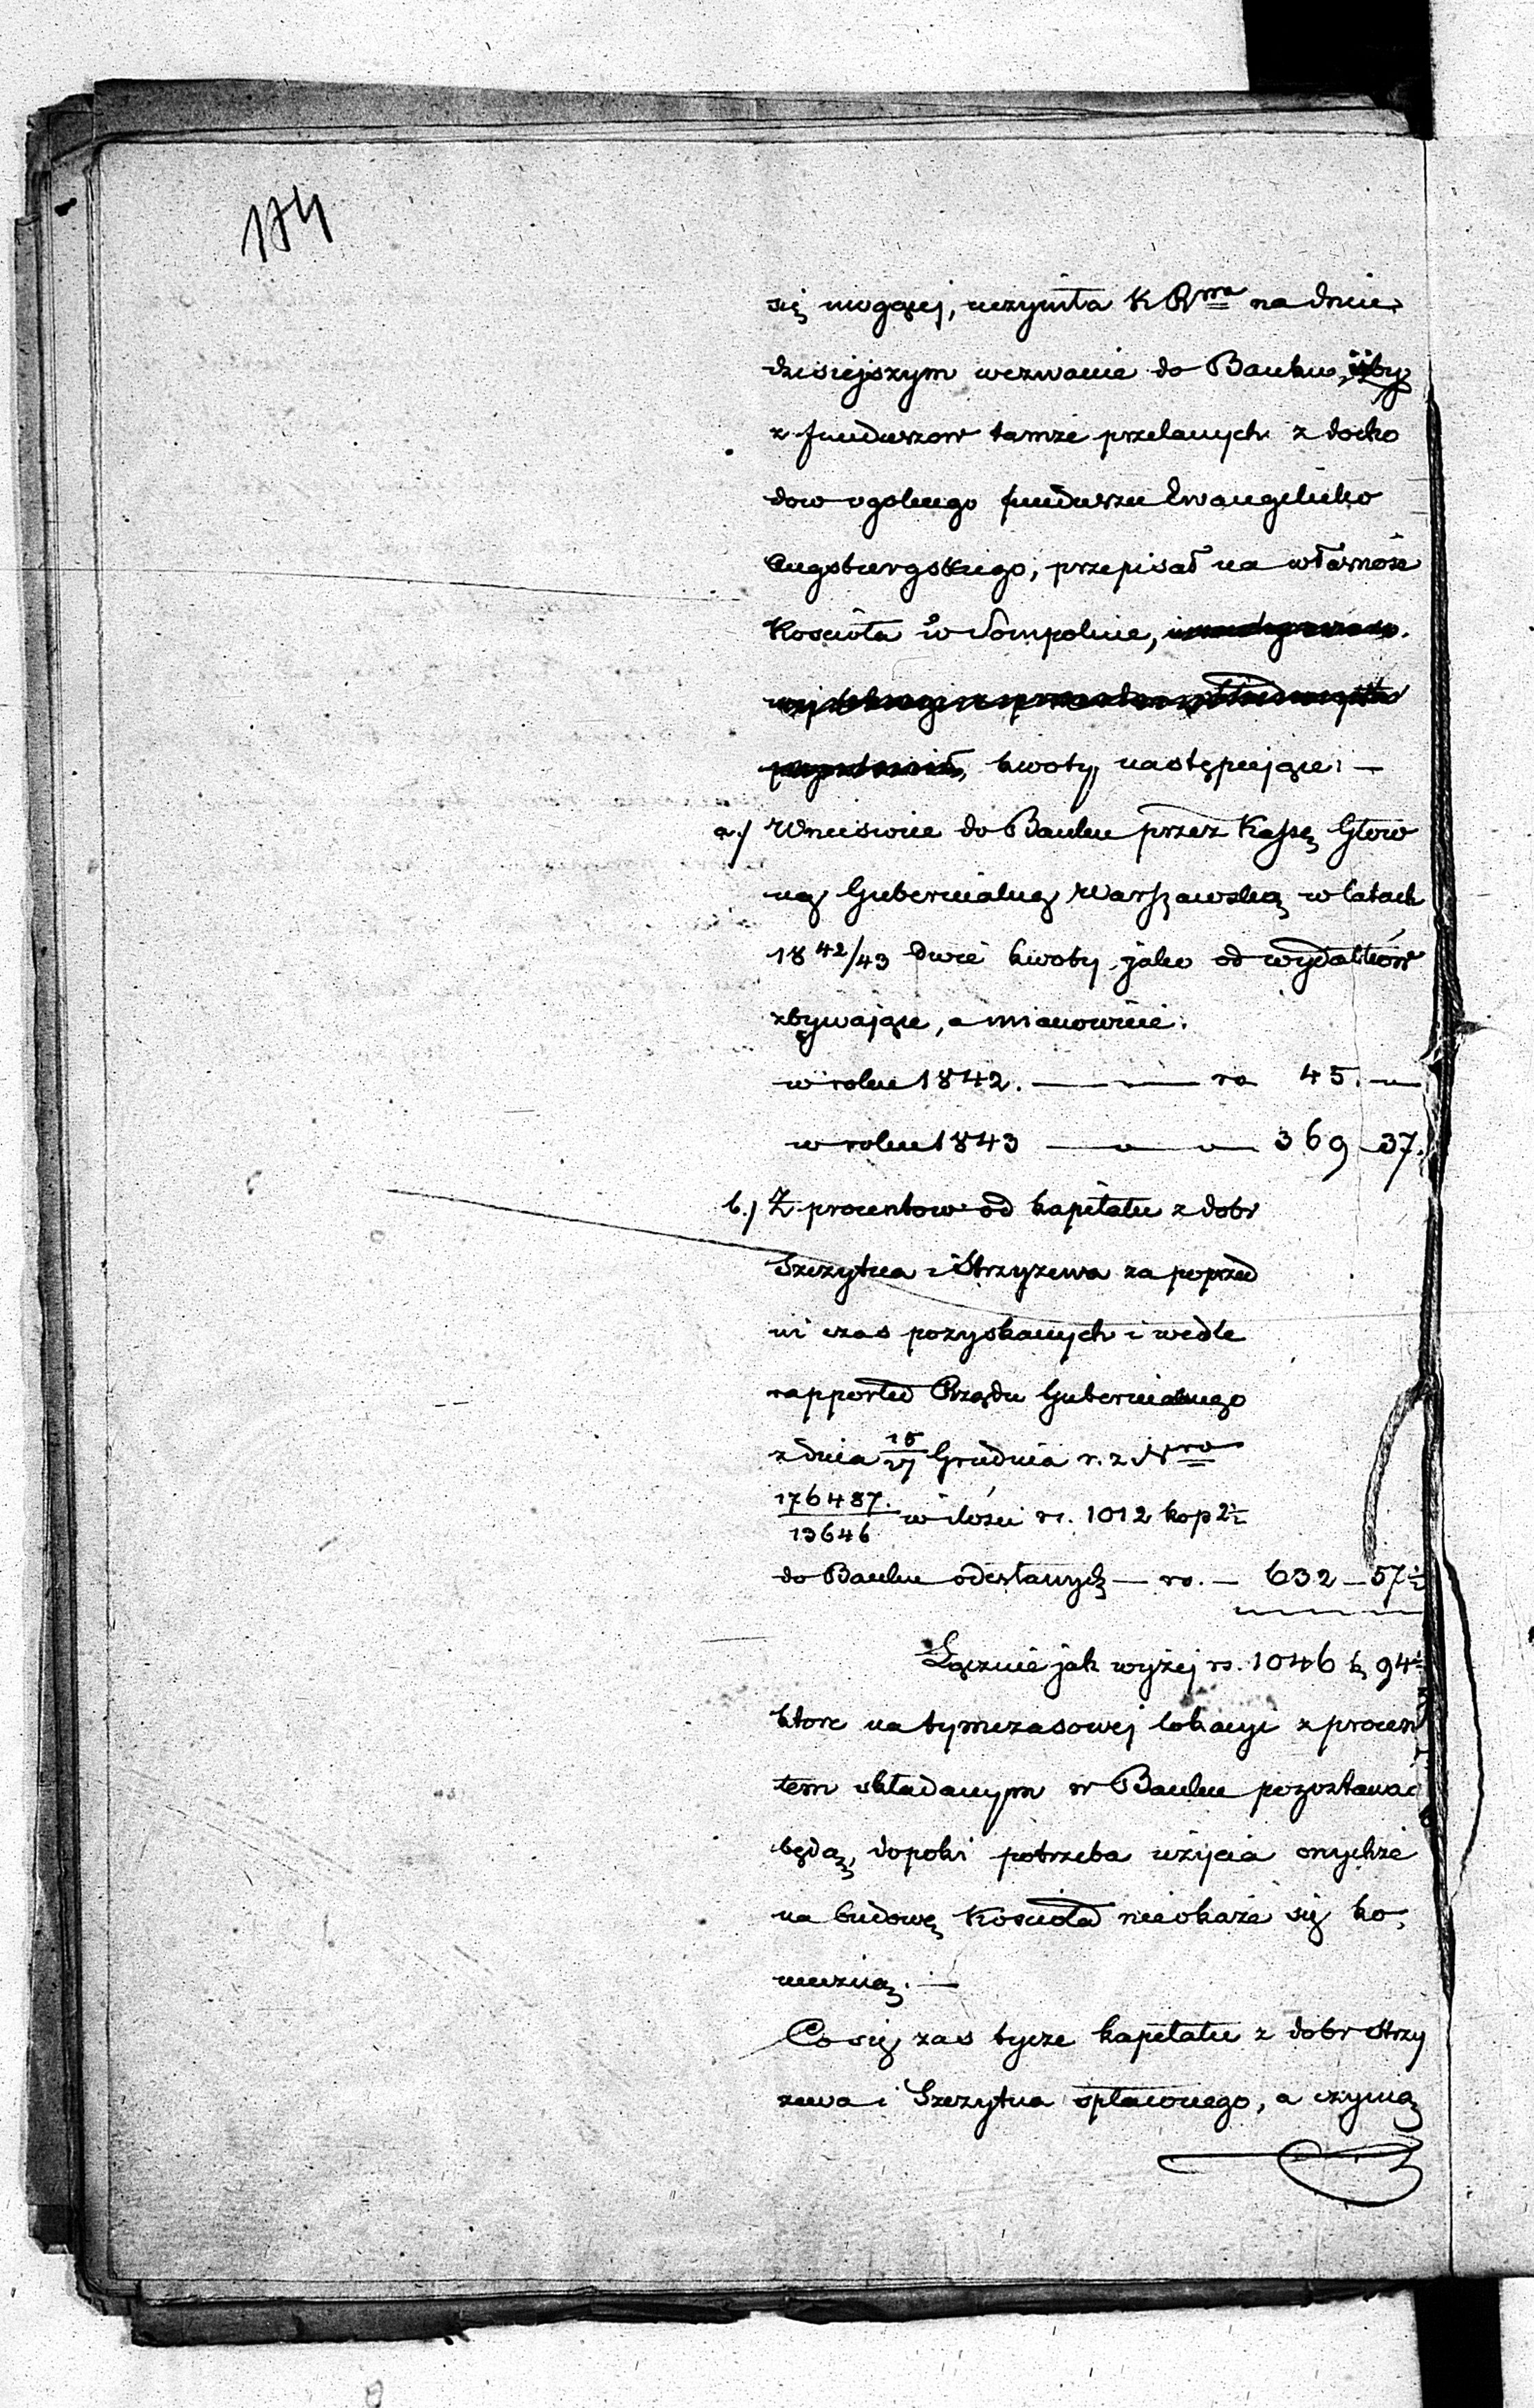 174
się mogącej, uczyniła K R<sup>ma</sup> na dniu
dzisiejszym wezwanie do Banku, iżby
z funduszow tamże przelanych z docho
dow ogolnego funduszu Ewangelicko
Augsburgskiego, przepisał na własnośc
Kościoła w Sompolnie,
kwoty następujące: —
a./ Wniesione do Banku przez Kassę Głow
ną Gubernialną Warszawską w latach
18 42/43 dwie kwoty jako od wydatków
zbywające, a mianowicie:
w roku 1842. — " — rs 45. — "
w roku 1843 — " — " — 369 - 37.
b./ Z procentow od kapitału z dobr
Szczytna i Strzyzewa za poprzed
ni czas pozyskanych i wedle
rapportu Rządu Gubernialnego
z dnia 15/27 Grudnia r. z N<sup>ro</sup>
176487./13646 w ilości rs. 1012 kop 2½
do Banku odesłanych — rs. — 632 — 57½
Łącznie jak wyżej rs. 1046 k 94½
ktore na tymczasowej lokacyi z procen
tem składanym w Banku pozostawać
będą, dopoki potrzeba użycia onychże
na budowę Kościoła nieokaże się ko-
nieczną. —
Co się zas tycze kapitału z dobr Strzy
zewa i Szczytna spłaconego, a czynią